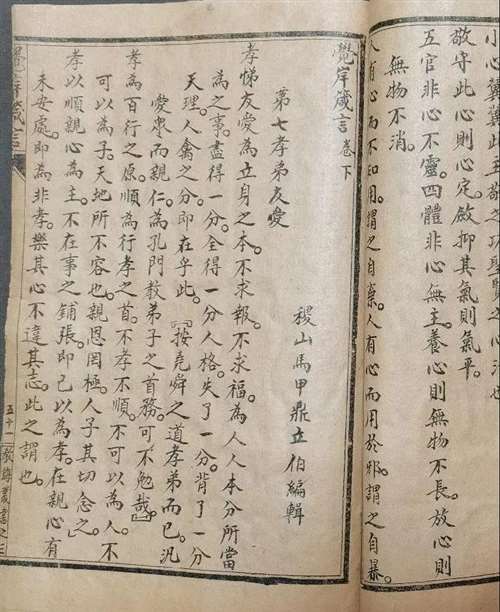 小心翼翼此五
敬守此心則心定。斂抑其氣則氣平。
五官非心不靈。四體非心無主。養心則無物不長。放心則
無物不消。
人有心而不知用。謂之自棄。人有心而用於邪。謂之自暴。
覺岸箴言 卷下
第七孝弟友愛
稷山馬甲鼎立伯編輯
孝悌友愛為立身之本。不求報。不求福。為人人本分所當
為之事。盡得一分。全得一分人格。失了一分。背了一分
天理。人禽之分即在乎此。【按堯舜之道孝弟而已。汎
愛衆而親仁。為孔門教弟子之首務。可不勉哉】
孝為百行之原。順為行孝之首。不孝不順。不可以為人。不
可以為子。天地所不容也。親恩罔極。人子其切念之。
孝以順親心為主。不在事之鋪張。即己以為孝。在親心有
未安處。即為非孝。樂其心不違其志。此之謂也。
覺岸箴言
五十一